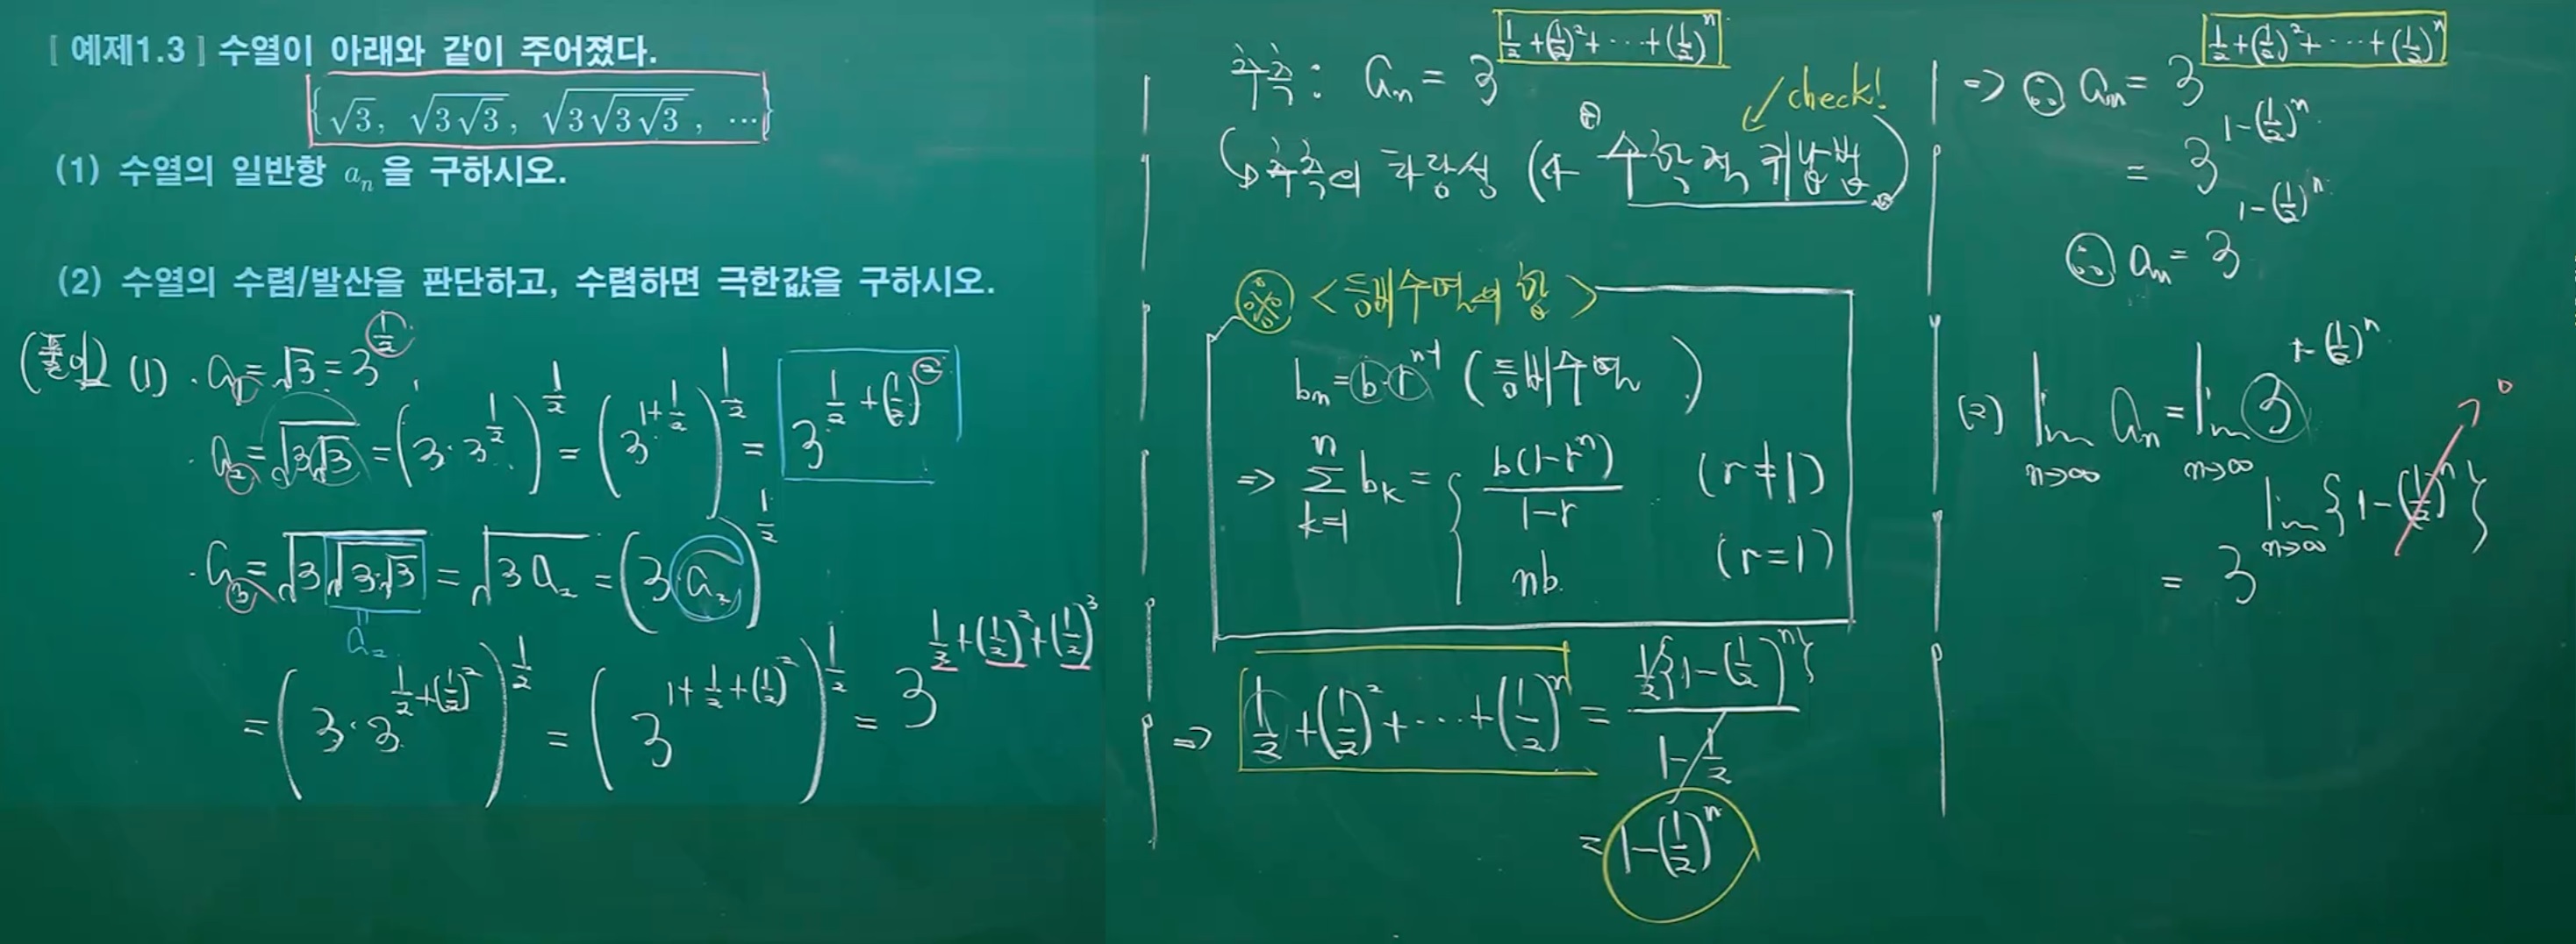 [ 예제1.3 ] 수열이 아래와 같이 주어졌다.
{ √3, √(3√3), √(3√(3√3)), ⋯ }
(1) 수열의 일반항 aₙ을 구하시오.
(2) 수열의 수렴/발산을 판단하고, 수렴하면 극한값을 구하시오.
(풀이) (1) · a₁ = √3 = 3^(1/2)
· a₂ = √(3√3) = (3·3^(1/2))^(1/2) = (3^(1+1/2))^(1/2) = 3^(1/2+(1/2)²)
· a₃ = √(3√(3·√3)) = √(3a₂) = (3·a₂)^(1/2)
a₂
= (3·3^(1/2+(1/2)²))^(1/2) = (3^(1+1/2+(1/2)²))^(1/2) = 3^(1/2+(1/2)²+(1/2)³)
추측 : aₙ = 3^(1/2+(1/2)²+⋯+(1/2)ⁿ)
check!
추측의 타당성 (← 수학적 귀납법)
※ <등비수열의 합>
bₙ = b·r^(n-1) (등비수열)
=> Σ_(k=1)^n bₖ = { b(1-rⁿ)/(1-r) (r≠1)
nb. (r=1)
=> 1/2+(1/2)²+⋯+(1/2)ⁿ = (1/2){1-(1/2)ⁿ}/(1-1/2)
= 1-(1/2)ⁿ
=> ∴ aₙ = 3^(1/2+(1/2)²+⋯+(1/2)ⁿ)
= 3^(1-(1/2)ⁿ)
∴ aₙ = 3^(1-(1/2)ⁿ)
(2) lim_(n→∞) aₙ = lim_(n→∞) 3^(1-(1/2)ⁿ)
= 3^(lim_(n→∞) {1-(1/2)ⁿ}) 0